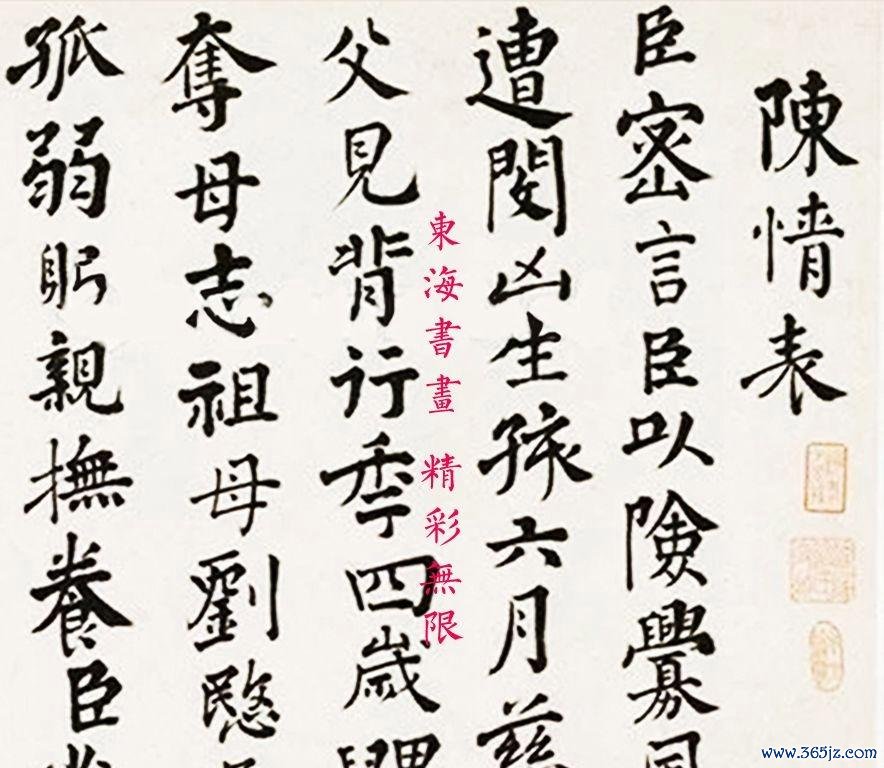 陳情表
臣密言臣以險釁
遭閔凶生孩六月慈
父見背行秊四歲
奪母志祖母劉愍
孤弱躬親撫養臣
東海書畫 精彩無限
www.365jz.com